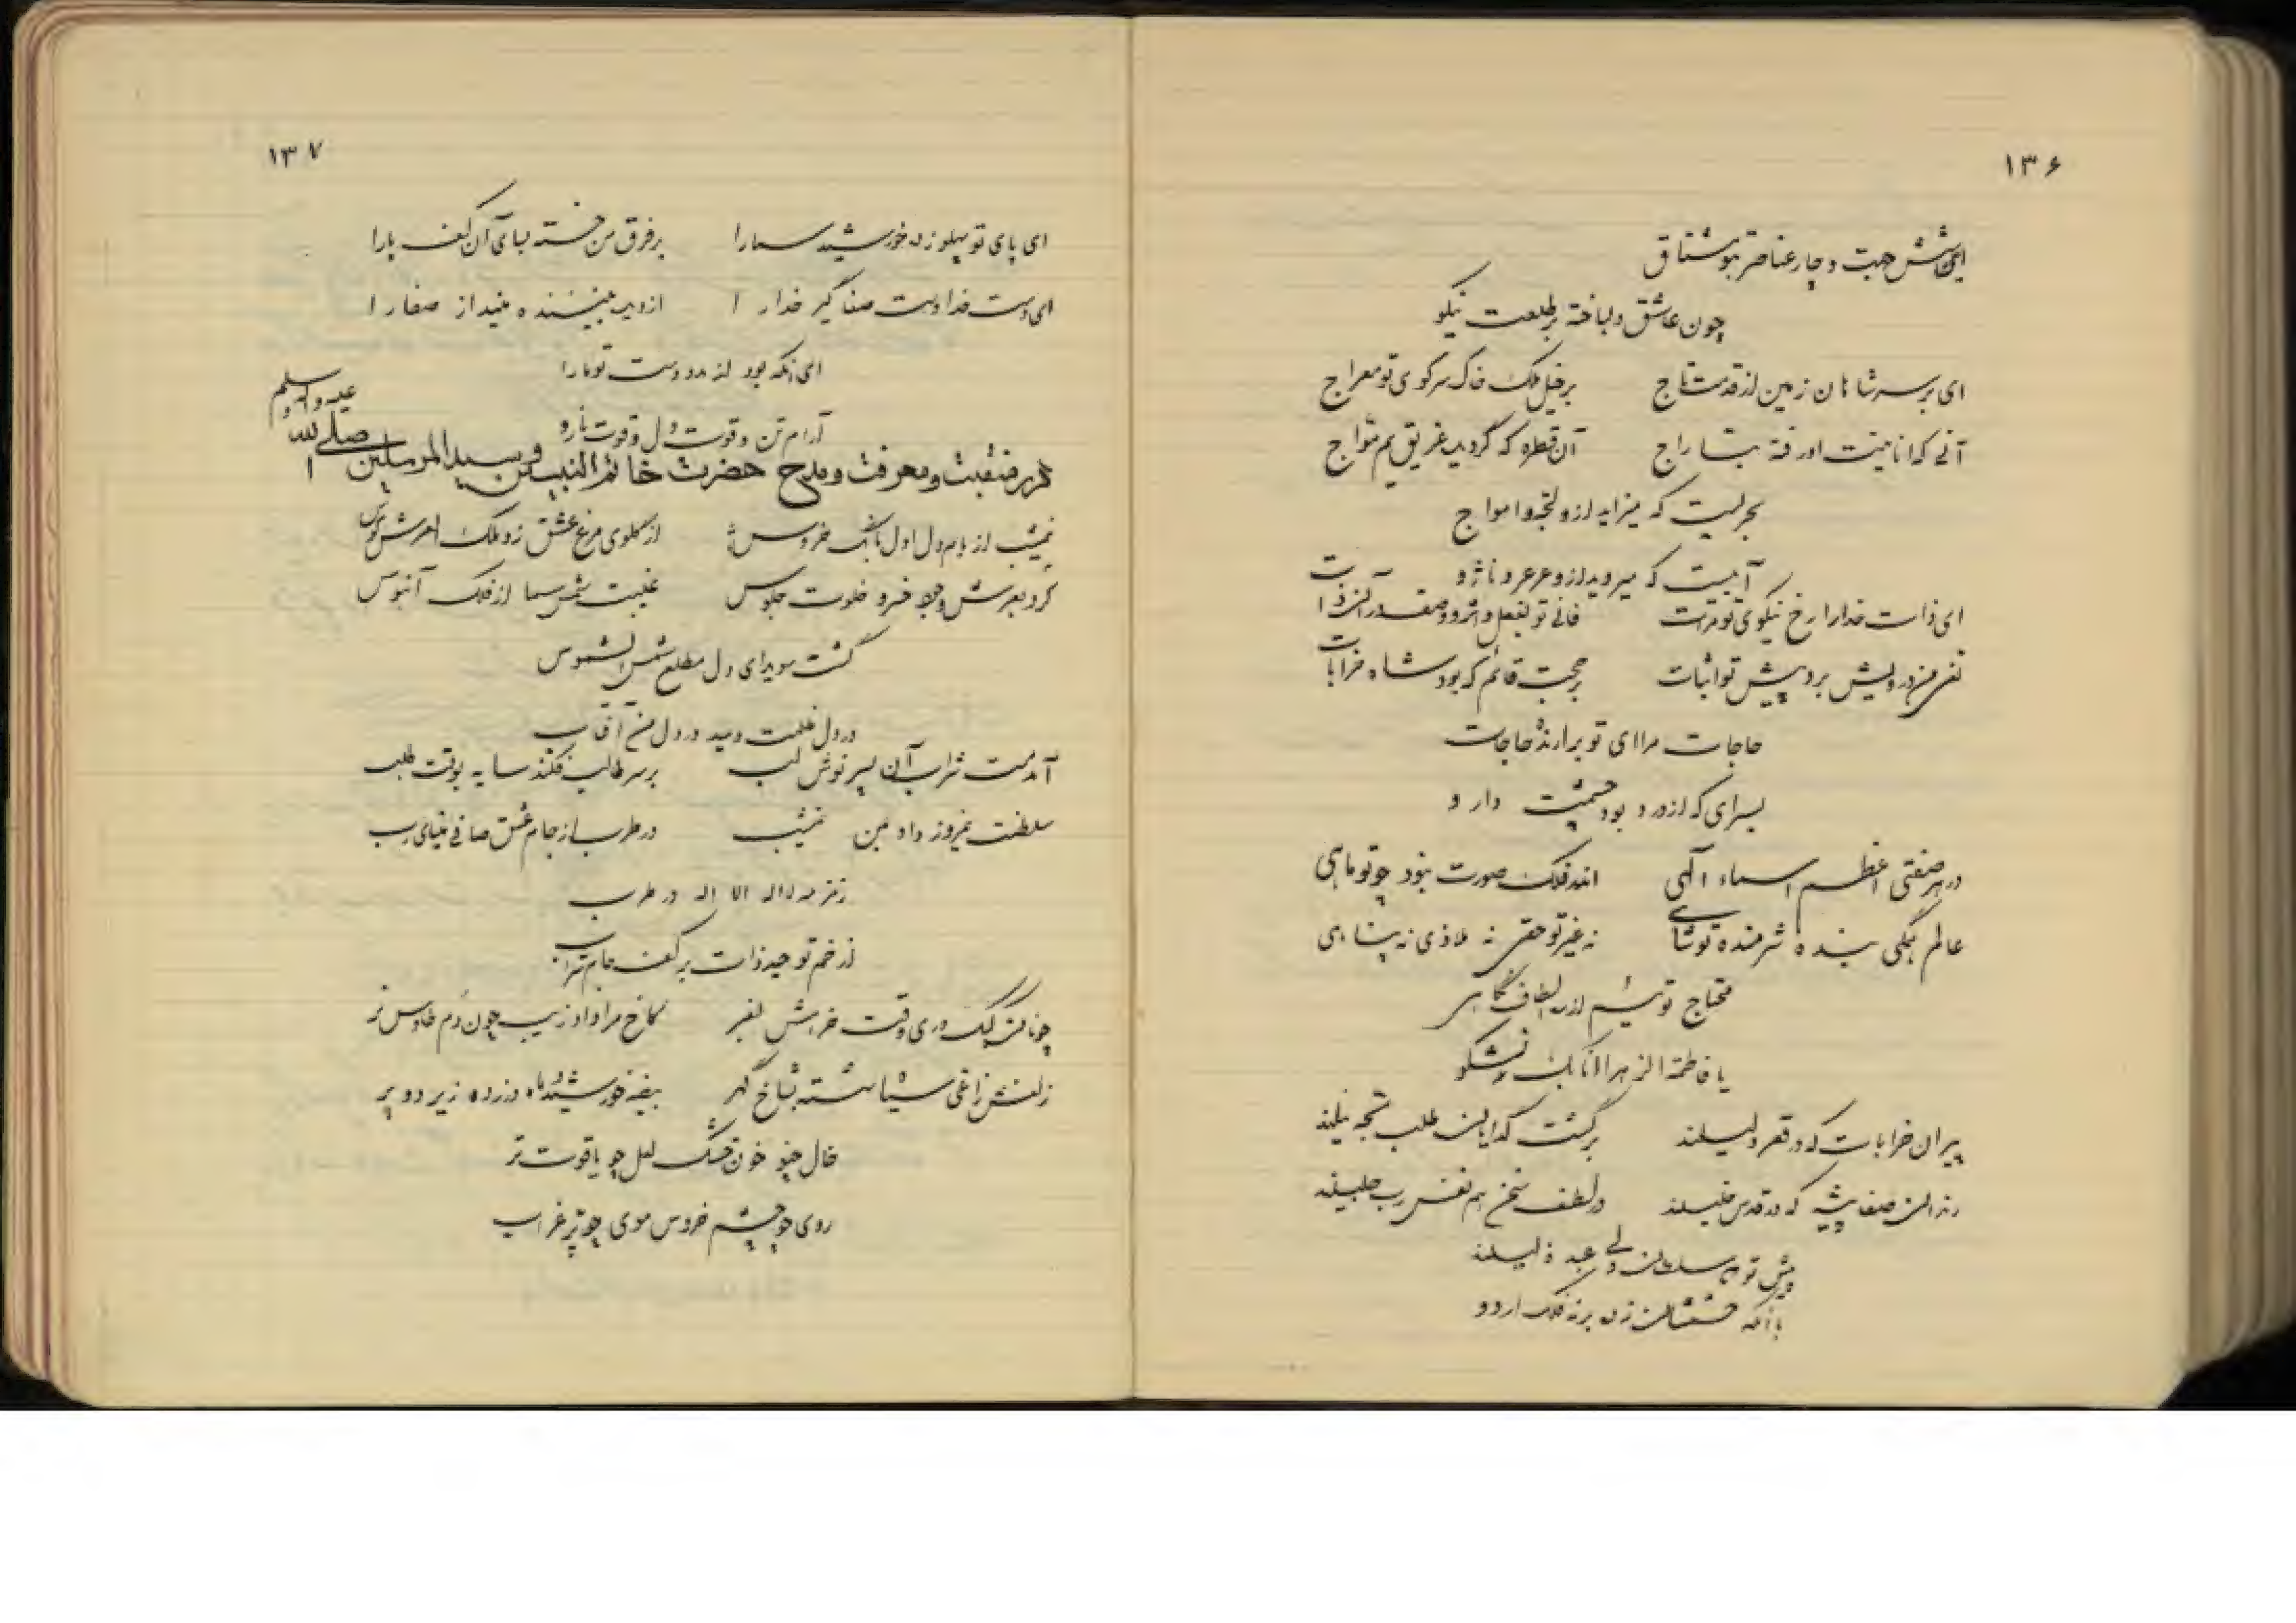 ۱۳۶
ای شش جهت و چار عناصر بتو مشتاق
چون عاشق دلباخته بر طلعت نیکو
ای بر سر شاهان زمین از قدمت تاج بر خیل ملک خاک سر کوی تو معراج
آنی که انانیت او رفته بتاراج آن قطره که گردید غریق یم مواج
بحریست که میزاید ازو لجه و امواج
آبیست که میروید ازو عرعر و ناژو
ای ذات خدا را رخ نیکوی تو مرآت فانی تو بفعل و اثر و وصف در آن ذات
نفی من درویش برد پیش تو اثبات بر حجت قائم که بود شاه خرابات
حاجات مرا ای تو برارنده حاجات
ای که از درد بود دارو
در هر صفتی اعظم اسماء الهی اندر فلک صورت نبود چو تو ماهی
عالم همگی بنده شرمنده تو شاهی نه غیر تو حقی نه ملاذی نه پناهی
محتاج توئیم از در الطاف نگاهی
یا فاطمة الزهرا انا بک نشکو
پیران خرابات که در فقر دلیلند بر کشت گدایان طلب نیلند
رندان صفا پیشه که در قدس خلیلند در لطف سخن هم نفس رب جلیلند
پیش تو سلطان ولی عبد ذلیلند
با آنکه حشمتشان زد بر نه فلک اردو
۱۳۷
ای پای تو پهلو زده خورشید سما را بر فرق من خسته بسای آن کف پا را
ای دست خدا دست صفا گیر خدا را از دیده بیننده مینداز صفا را
ای آنکه بود از مدد دست تو ما را
آرام تن و قوت دل و قوت بازو
در منقبت و معرفت و مدح حضرت خاتم النبیین و سید المرسلین صلی الله علیه و آله و سلم
نیمشب از بام دل اول بانگ خروس از گلوی مرغ عشق زد ملک العرش کوس
کرد بعرش وجود خسرو خلوت جلوس غیبت شمس سما از فلک آبنوس
گشت سویدای دل مطلع شمس الشموس
در دل ظلمت دمید در دل من آفتاب
آمد مست شراب آن پسر نوش لب بر سر طالب فکند سایه بوقت طلب
سلطنت نیمروز داد بمن نیمشب در طرب از جام عشق صافی مینای رب
زمزمه لااله الا اله در طرب
از خم توحید ذات بر کف جام شراب
چونانکه کبک دری وقت خرامش بفر کاخ مرا داد زیب چون دم طاوس نر
زلفش زاغی سیاه نشسته بشاخ گهر بیضه خورشید و ماه دزده زیر دو پر
خال چو خون خشک لعل چو یاقوت تر
روی چو چشم خروس موی چو پر غراب